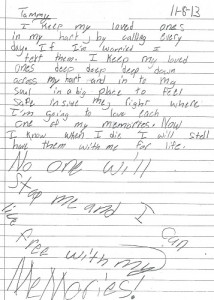 Tommy 11-8-13
I keep my loved ones
in my hart, by calling every
day. If I'm worried I
text them. I keep my loved
ones deep deep deep down
across my hart and in to my
soul in a big place to feel
safe insive me, right where
I'm going to love each
one of my memories. Now
I know when I die I will still
have them with me for life.
No one will
stop me and I
can
live
free with my
MeMories!